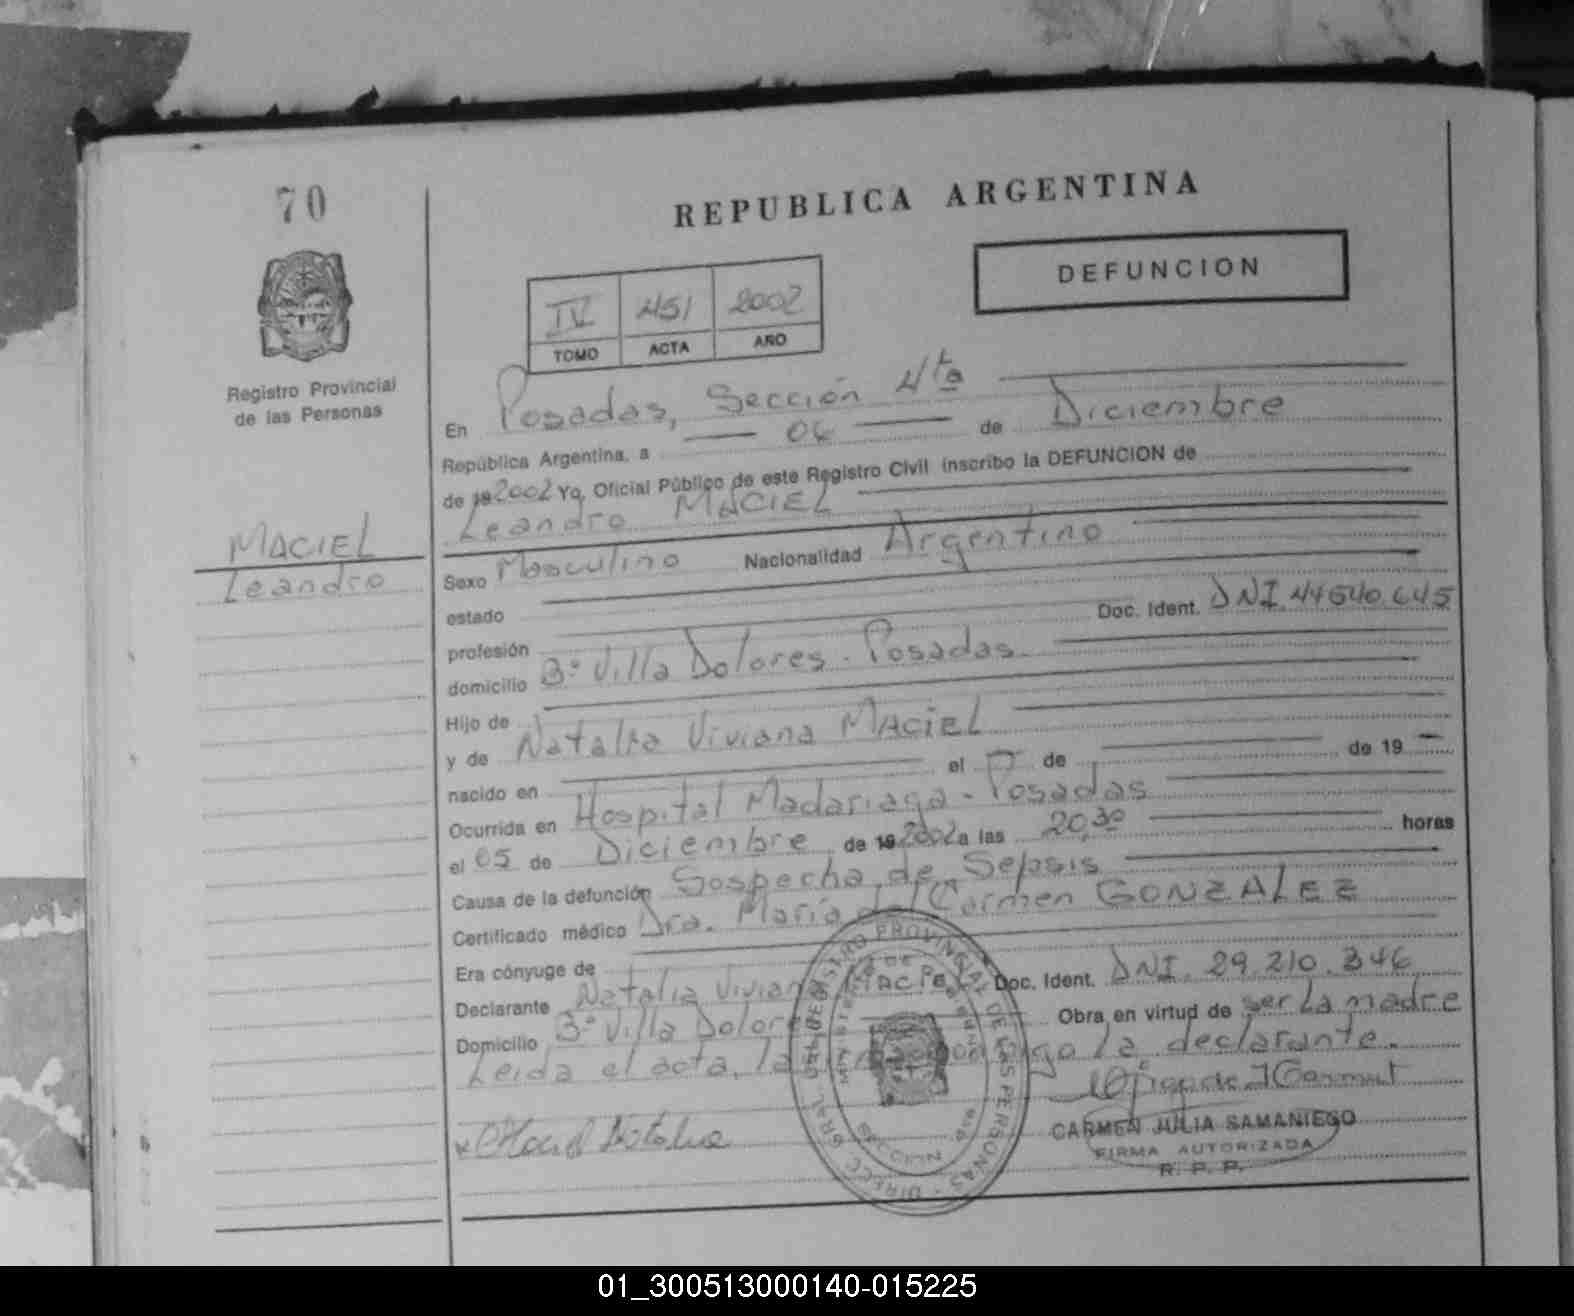 70
REPUBLICA ARGENTINA
DEFUNCION
IV 451 2002
TOMO ACTA AÑO
Registro Provincial
de las Personas
En Posadas, Sección 4ta
República Argentina, a 06 de Diciembre
de 19 2002 Yo, Oficial Público de este Registro Civil inscribo la DEFUNCION de
Leandro MACIEL
MACIEL
Leandro
Sexo Masculino Nacionalidad Argentino
estado
profesión Doc. Ident. DNI. 44.540.645
domicilio Bº Villa Dolores - Posadas
Hijo de
y de Natalia Viviana MACIEL
nacido en el de de 19
Ocurrida en Hospital Madariaga - Posadas
el 05 de Diciembre de 19 2002 a las 20,30 horas
Causa de la defunción Sospecha de Sepsis
Certificado médico Dra. María del Carmen GONZALEZ
Era cónyuge de
Declarante Natalia Viviana MACIEL Doc. Ident. DNI. 29.210.346
Domicilio Bº Villa Dolores Obra en virtud de ser la madre
Leída el acta, la declarante.
CARMEN JULIA SAMANIEGO
FIRMA AUTORIZADA
R. P. P.
DIRECC. GRAL. DEL REGISTRO PROVINCIAL DE LAS PERSONAS
01_300513000140-015225